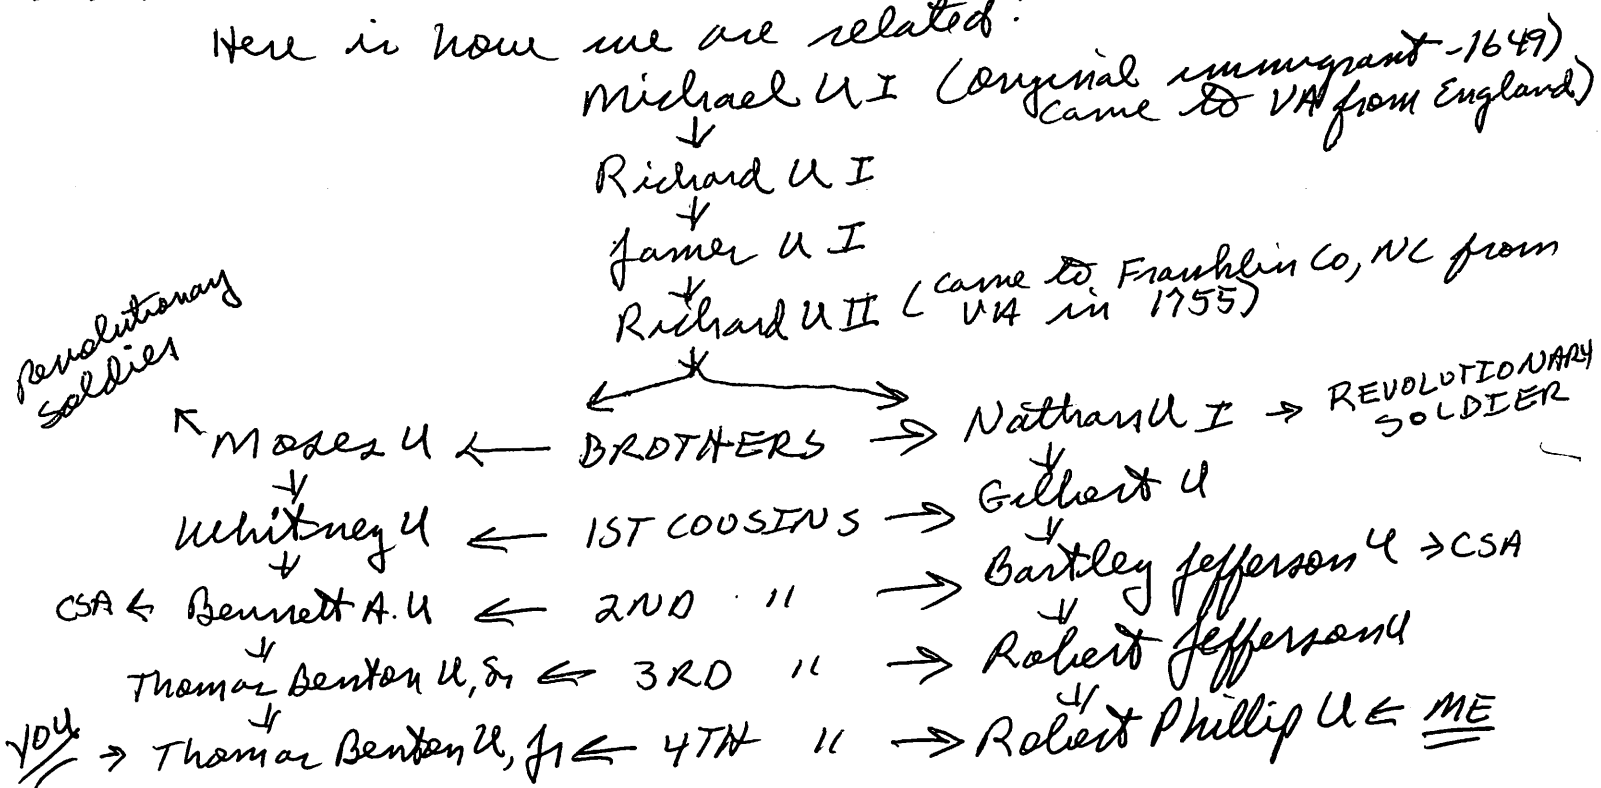 Here is how we are related:
Michael U I (original immigrant - 1649)
came to VA from England)
Richard U I
James U I
Richard U II (came to Franklin Co, NC from
VA in 1755)
Revolutionary
soldier
Moses U ← BROTHERS → Nathan U I → REVOLUTIONARY
SOLDIER
Whitney U ← 1ST COUSINS → Gilbert U
CSA ← Bennett A. U ← 2ND " → Bartley Jefferson U → CSA
Thomas Benton U, Sr ← 3RD " → Robert Jefferson U
YOU → Thomas Benton U, Jr ← 4TH " → Robert Phillip U ← ME